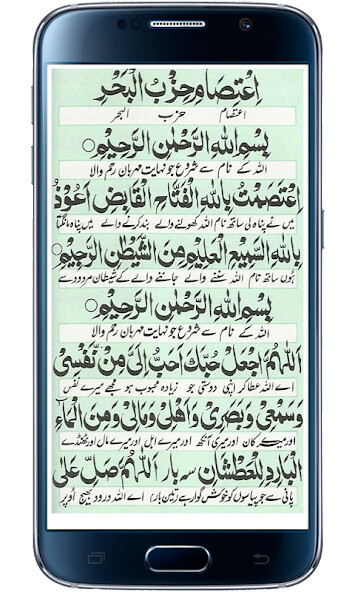 SAMSUNG
اِعْتِصَامِ حِزْبُ الْبَحْرِ
اعتصام حزب البحر
بِسْمِ اللهِ الرَّحْمٰنِ الرَّحِيْمِ
اللہ کے نام سے شروع جو نہایت مہربان رحم والا
اِعْتَصَمْتُ بِاللهِ الْفَتَّاحِ الْقَابِضِ اَعُوْذُ
میں نے پناہ لی ساتھ نام اللہ کھولنے والے بند کرنے والے میں پناہ مانگتا
بِاللهِ السَّمِيْعِ الْعَلِيْمِ مِنَ الشَّيْطٰنِ الرَّجِيْمِ
ہوں ساتھ نام اللہ سننے والے جاننے والے کے شیطان مردود سے
بِسْمِ اللهِ الرَّحْمٰنِ الرَّحِيْمِ
اللہ کے نام سے شروع جو نہایت مہربان رحم والا
اَللّٰهُمَّ اجْعَلْ حُبَّكَ اَحَبَّ اِلَىَّ مِنْ نَّفْسِىْ
اے اللہ عطا کر اپنی دوستی جو زیادہ محبوب ہو مجھے میرے نفس
وَسَمْعِىْ وَبَصَرِىْ وَاَهْلِىْ وَمَالِىْ وَمِنَ الْمَآءِ
اور میرے کان اور میری آنکھ اور میرے اہل اور میرے مال اور ٹھنڈے
الْبَارِدِ لِلْعَطْشَانِ سہ بار اَللّٰهُمَّ صَلِّ عَلٰى
پانی سے جو پیاسوں کو خوش گوار ہے (تین بار) اے اللہ درود بھیج اُوپر